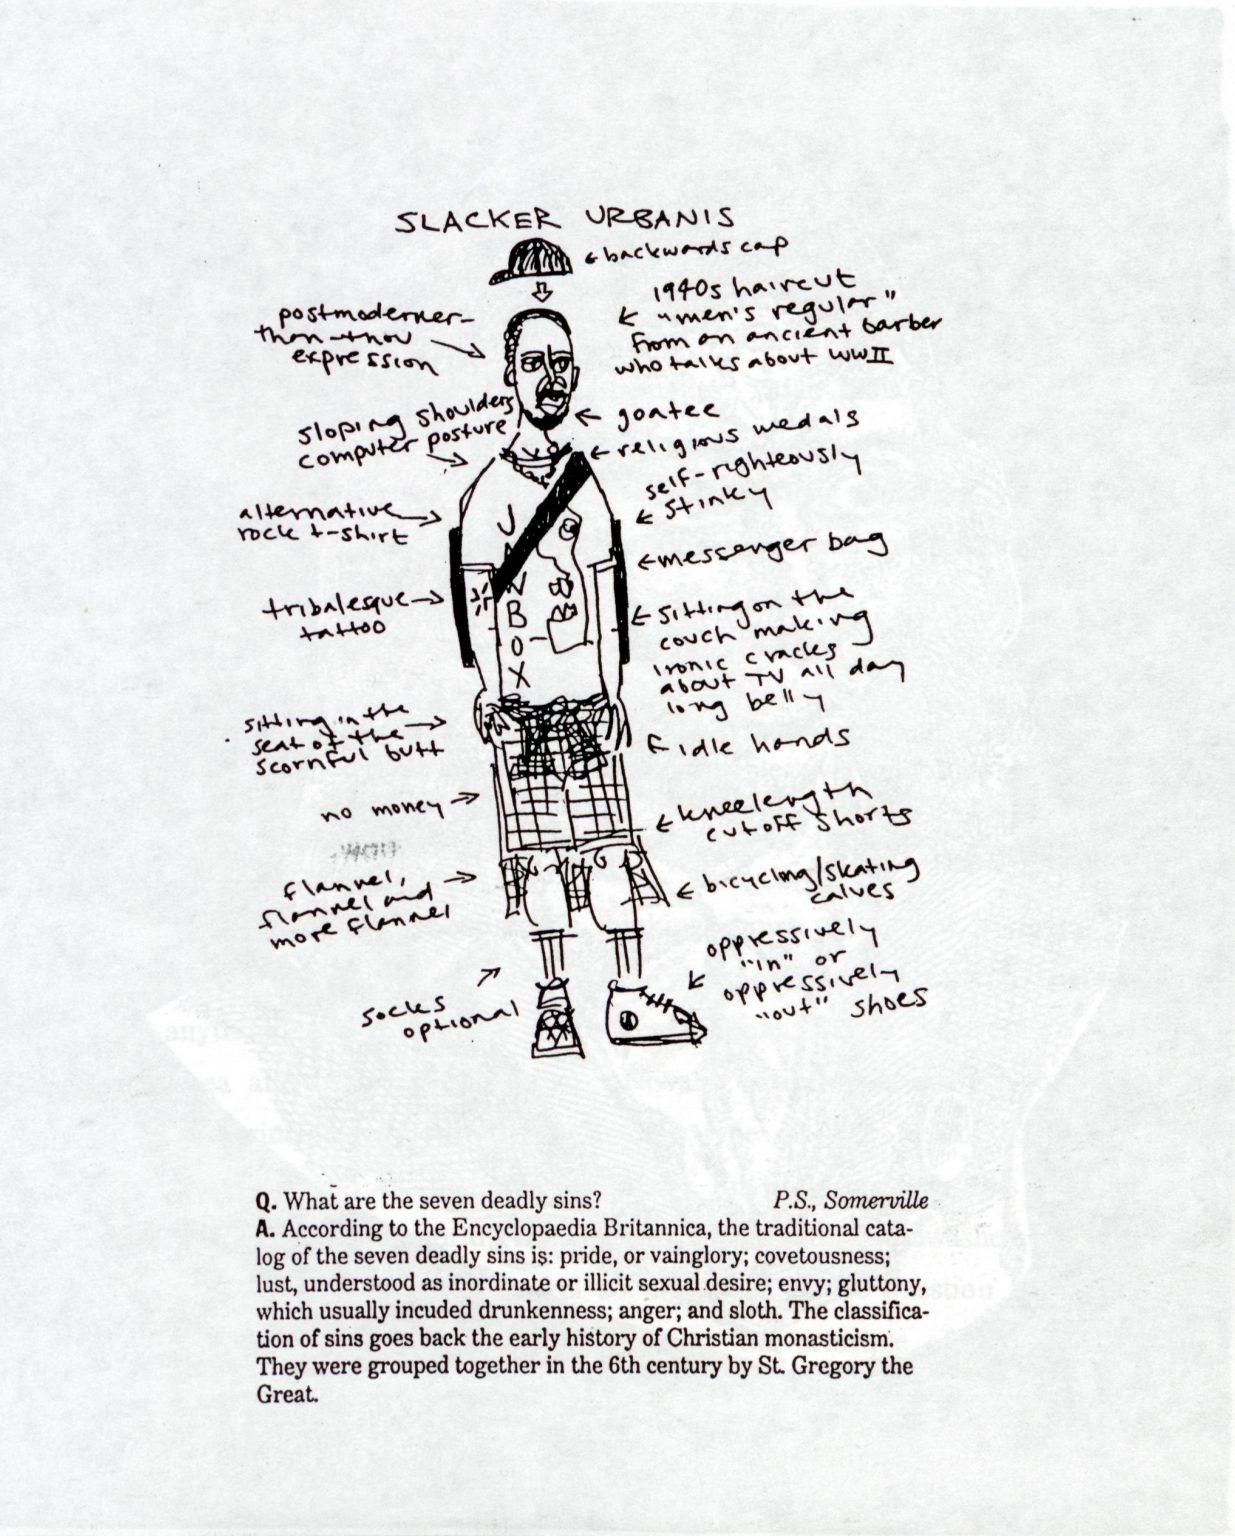 SLACKER URBANIS
← backwards cap
1940s haircut
← "men's regular"
from an ancient barber
who talks about WWII
postmoderner-
than-thou
expression →
← goatee
sloping shoulders
computer posture →
← religious medals
self-righteously
← stinky
alternative →
rock t-shirt
← messenger bag
J
N
B
O
X
tribalesque →
tattoo
← sitting on the
couch making
ironic cracks
about TV all day
long belly
sitting in the →
seat of the
scornful butt
← idle hands
no money →
← kneelength
cutoff shorts
flannel, →
flannel and
more flannel
← bicycling/skating
calves
oppressively
← "in" or
oppressively
"out" shoes
socks
optional
Q. What are the seven deadly sins? P.S., Somerville
A. According to the Encyclopaedia Britannica, the traditional cata-
log of the seven deadly sins is: pride, or vainglory; covetousness;
lust, understood as inordinate or illicit sexual desire; envy; gluttony,
which usually incuded drunkenness; anger; and sloth. The classifica-
tion of sins goes back the early history of Christian monasticism.
They were grouped together in the 6th century by St. Gregory the
Great.